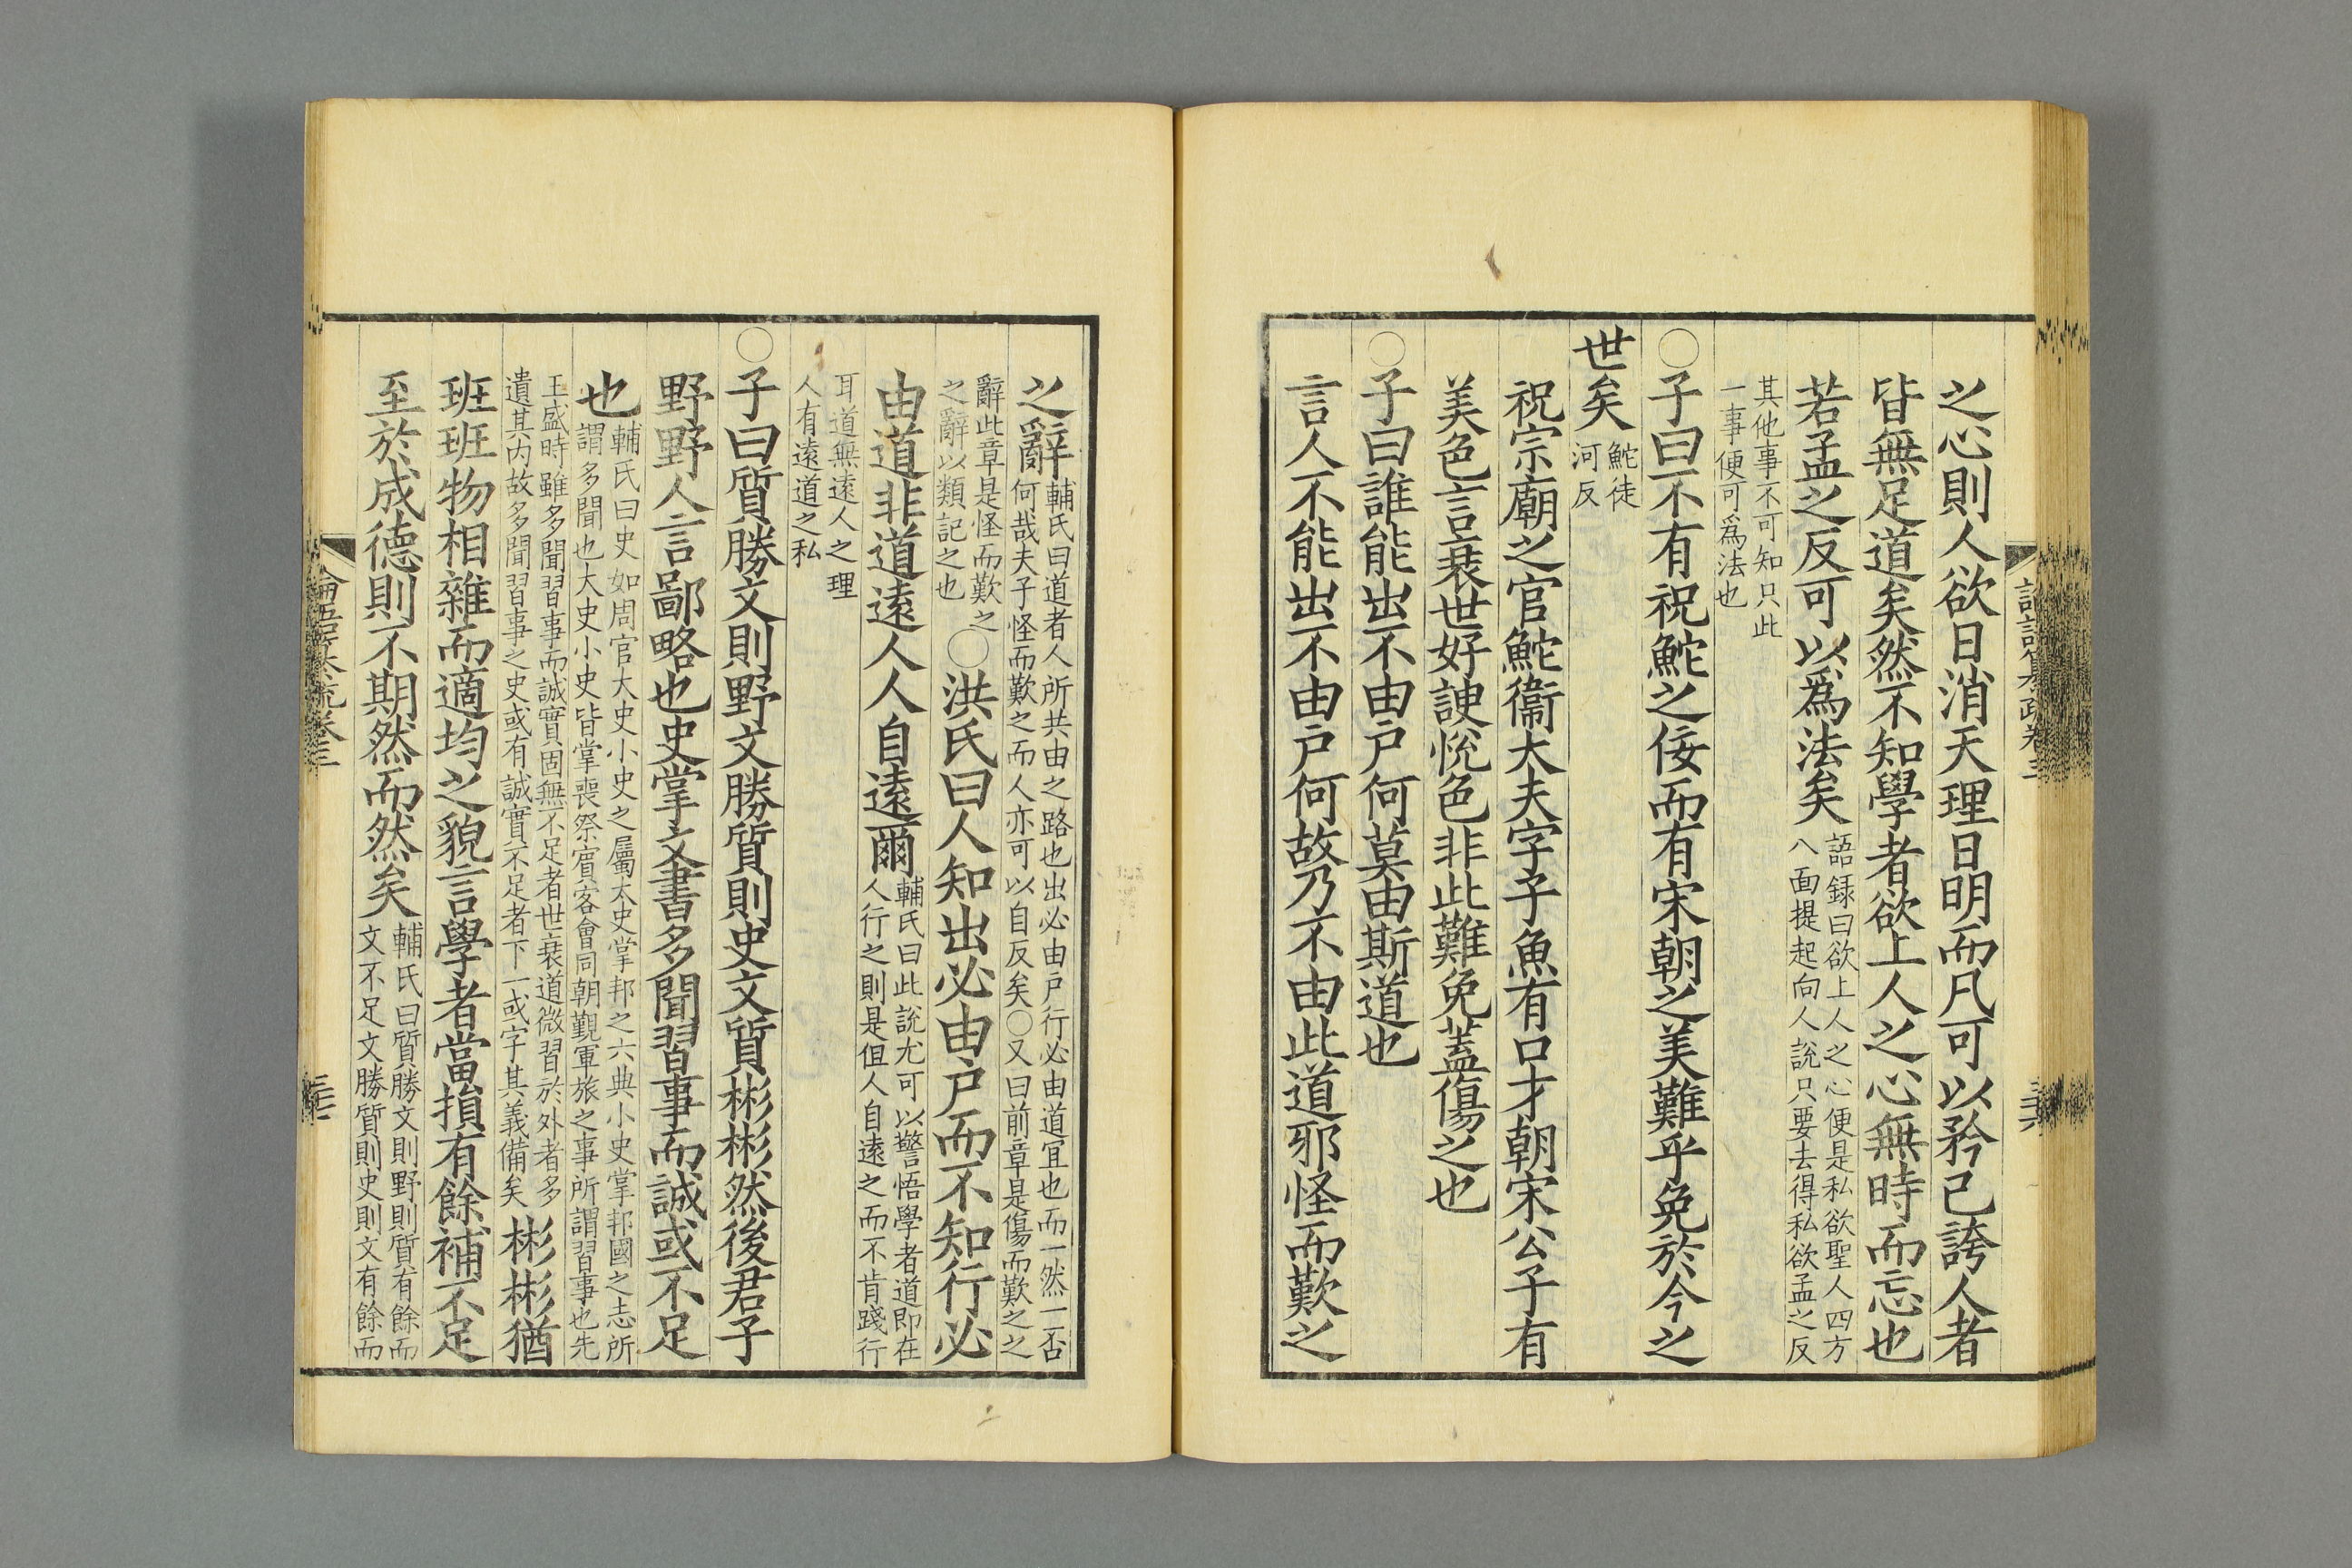 之心則人欲日消天理日明而凡可以矜己誇人者
皆無足道矣然不知學者欲上人之心無時而忘也
若孟之反可以爲法矣
語録曰欲上人之心便是私欲聖人四方
八面提起向人說只要去得私欲孟之反
其他事不可知只此
一事便可爲法也
○子曰不有祝鮀之佞而有宋朝之美難乎免於今之
世矣
鮀徒
河反
祝宗廟之官鮀衞大夫字子魚有口才朝宋公子有
美色言衰世好諛悅色非此難免蓋傷之也
○子曰誰能出不由戶何莫由斯道也
言人不能出不由戶何故乃不由此道邪怪而歎之
之辭
輔氏曰道者人所共由之路也出必由戶行必由道宜也而一然一否
何哉夫子怪而歎之而人亦可以自反矣○又曰前章是傷而歎之之
辭此章是怪而歎之
之辭以類記之也
○洪氏曰人知出必由戶而不知行必
由道非道遠人人自遠爾
輔氏曰此說尤可以警悟學者道即在
人行之則是但人自遠之而不肯踐行
耳道無遠人之理
人有遠道之私
○子曰質勝文則野文勝質則史文質彬彬然後君子
野野人言鄙略也史掌文書多聞習事而誠或不足
也
輔氏曰史如周官大史小史之屬太史掌邦之六典小史掌邦國之志所
謂多聞也大史小史皆掌喪祭賓客會同朝覲軍旅之事所謂習事也先
王盛時雖多聞習事而誠實固無不足者世衰道微習於外者多
遺其内故多聞習事之史或有誠實不足者下一或字其義備矣
彬彬猶
班班物相雜而適均之貌言學者當損有餘補不足
至於成德則不期然而然矣
輔氏曰質勝文則野則質有餘而
文不足文勝質則史則文有餘而